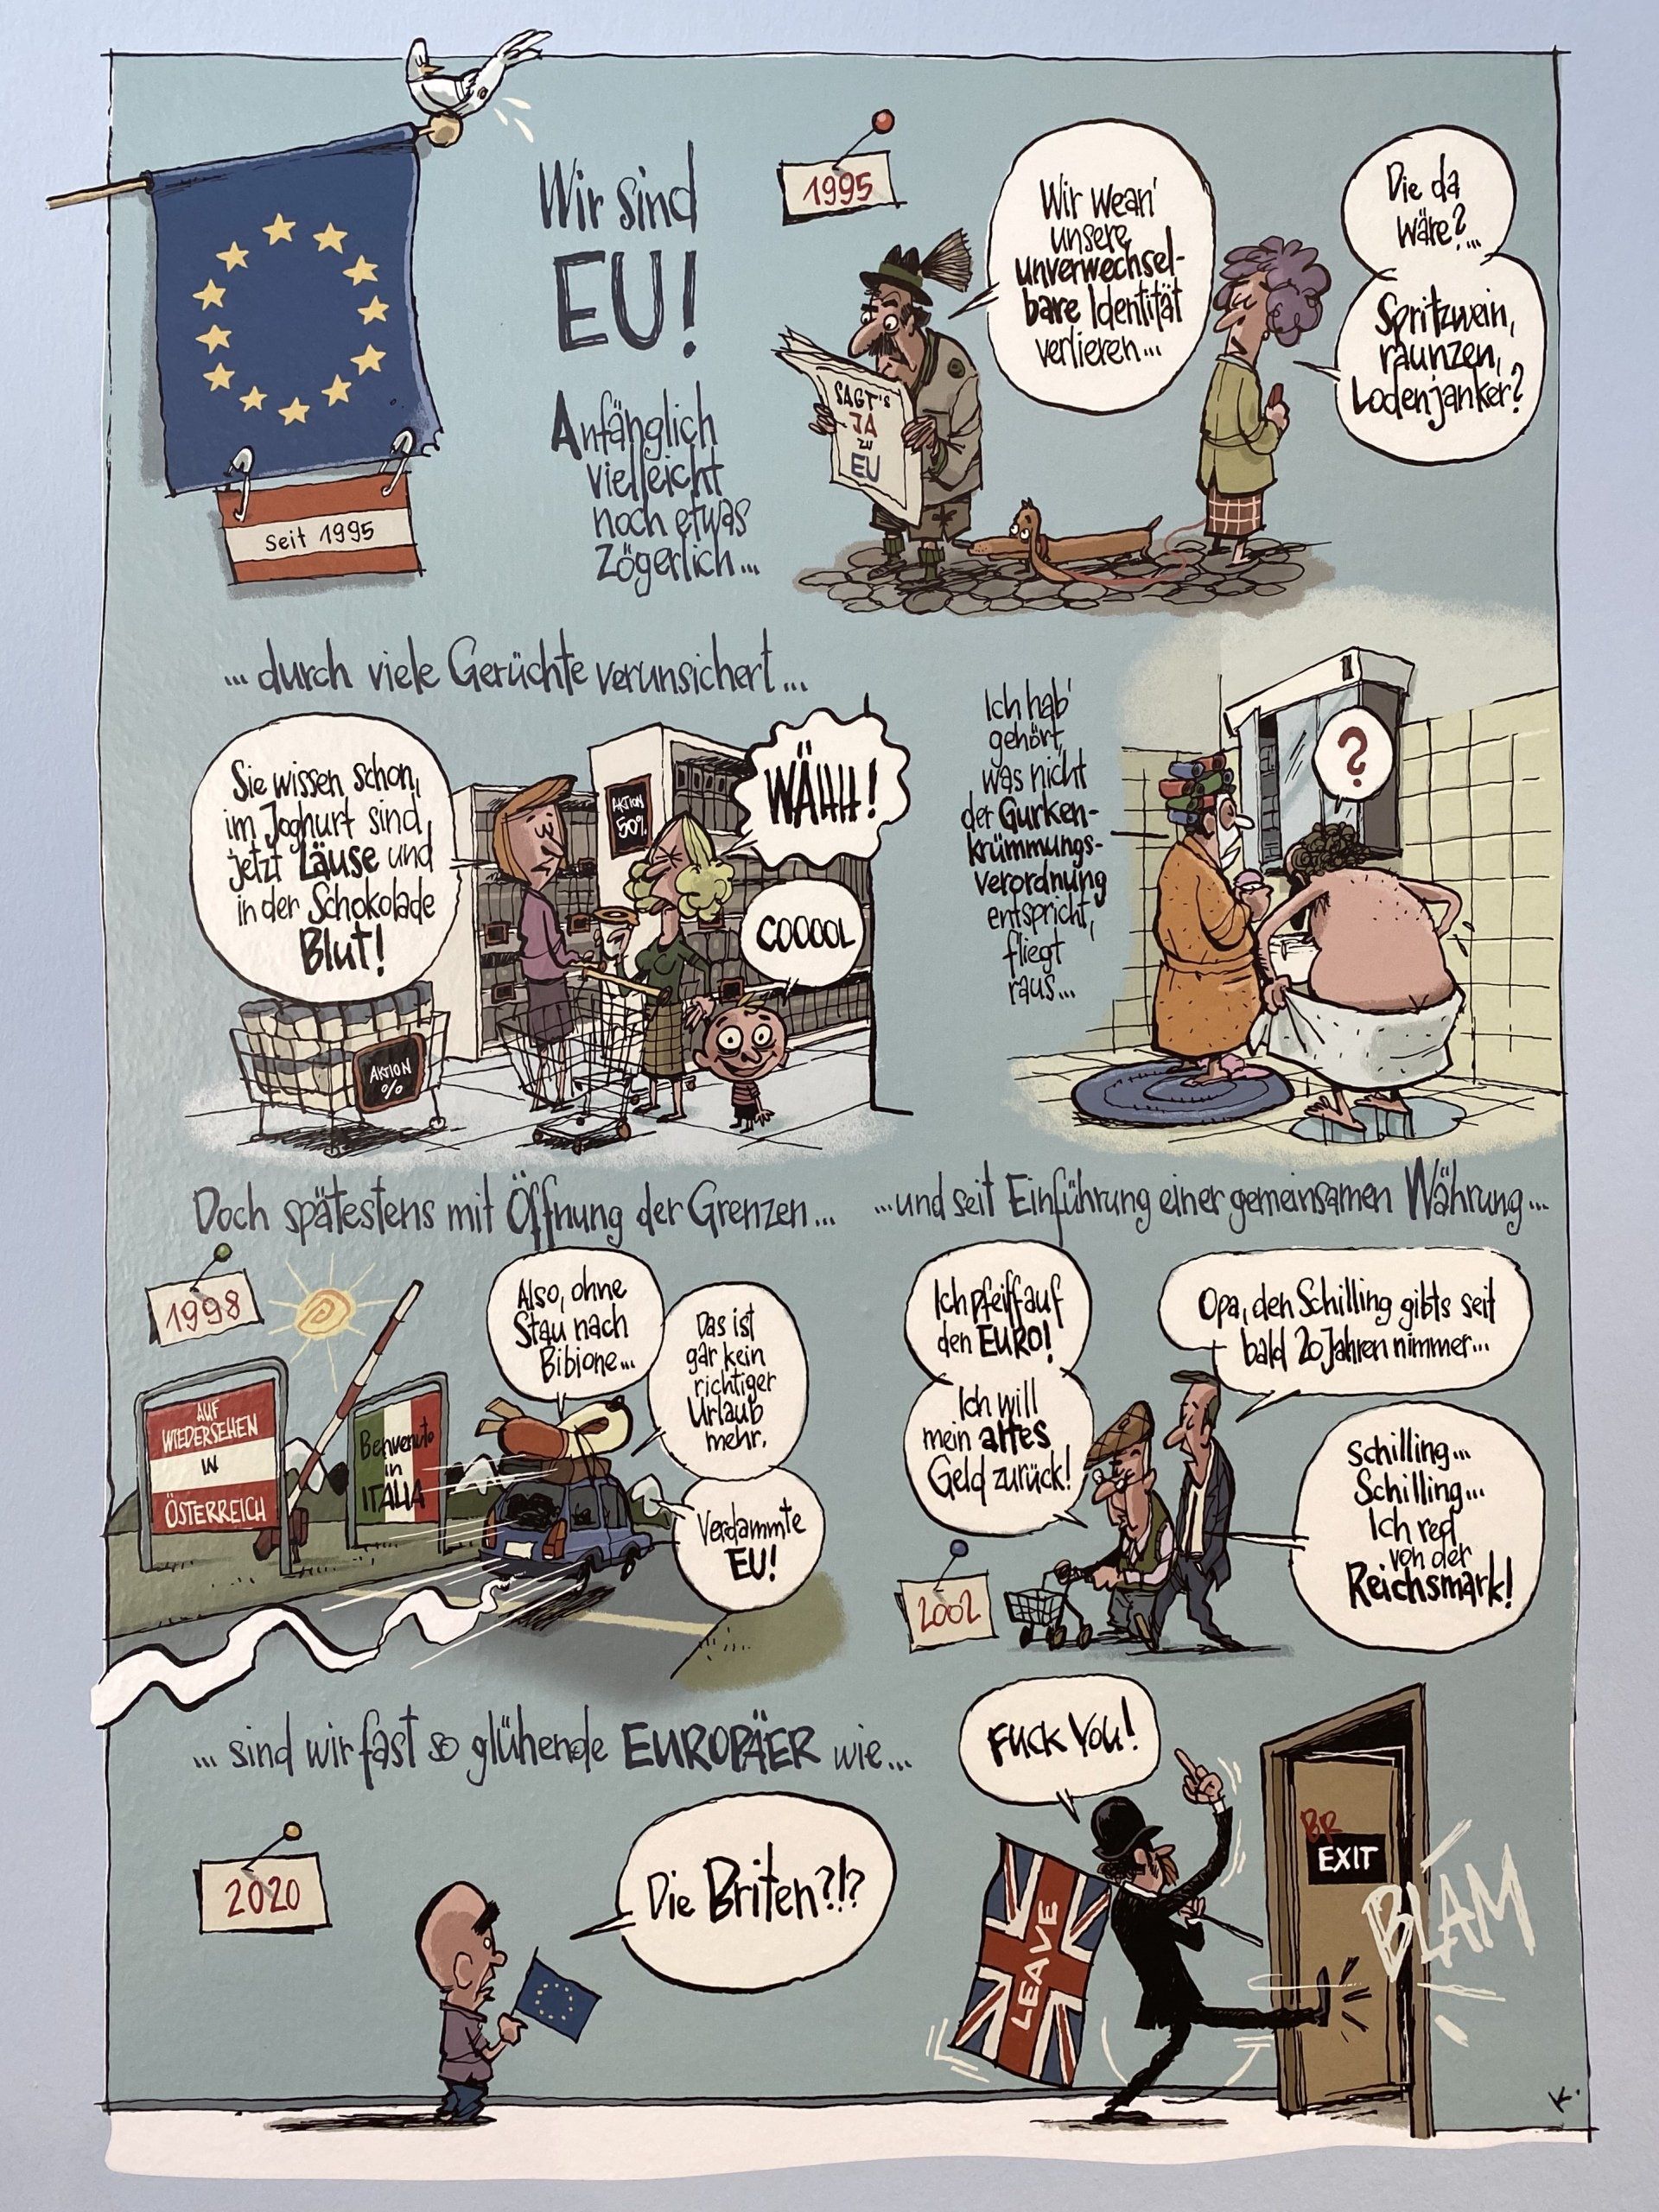 Wir sind
EU!
Seit 1995
Anfänglich
vielleicht
noch etwas
Zögerlich...
1995
Wir wean'
unsere
unverwechsel-
bare Identität
verlieren...
Die da
wäre?...
Spritzwein,
raunzen,
Lodenjanker?
SAGT'S
JA
zu
EU
...durch viele Gerüchte verunsichert...
Sie wissen schon,
im Joghurt sind
jetzt Läuse und
in der Schokolade
Blut!
AKTION
50%
WÄHH!
COOOOL
AKTION
%
Ich hab'
gehört,
was nicht
der Gurken-
krümmungs-
verordnung
entspricht,
fliegt
raus...
?
Doch spätestens mit Öffnung der Grenzen...
1998
AUF
WIEDERSEHEN
IN
ÖSTERREICH
Benvenuto
in
ITALIA
Also, ohne
Stau nach
Bibione...
Das ist
gar kein
richtiger
Urlaub
mehr.
Verdammte
EU!
...und seit Einführung einer gemeinsamen Währung...
Ich pfeiff auf
den EURO!
Ich will
mein altes
Geld zurück!
Opa, den Schilling gibts seit
bald 20 Jahren nimmer...
Schilling...
Schilling...
Ich red
von der
Reichsmark!
2002
...sind wir fast so glühende EUROPÄER wie...
2020
Die Briten?!?
FUCK YOU!
LEAVE
BR
EXIT
BLAM
K.